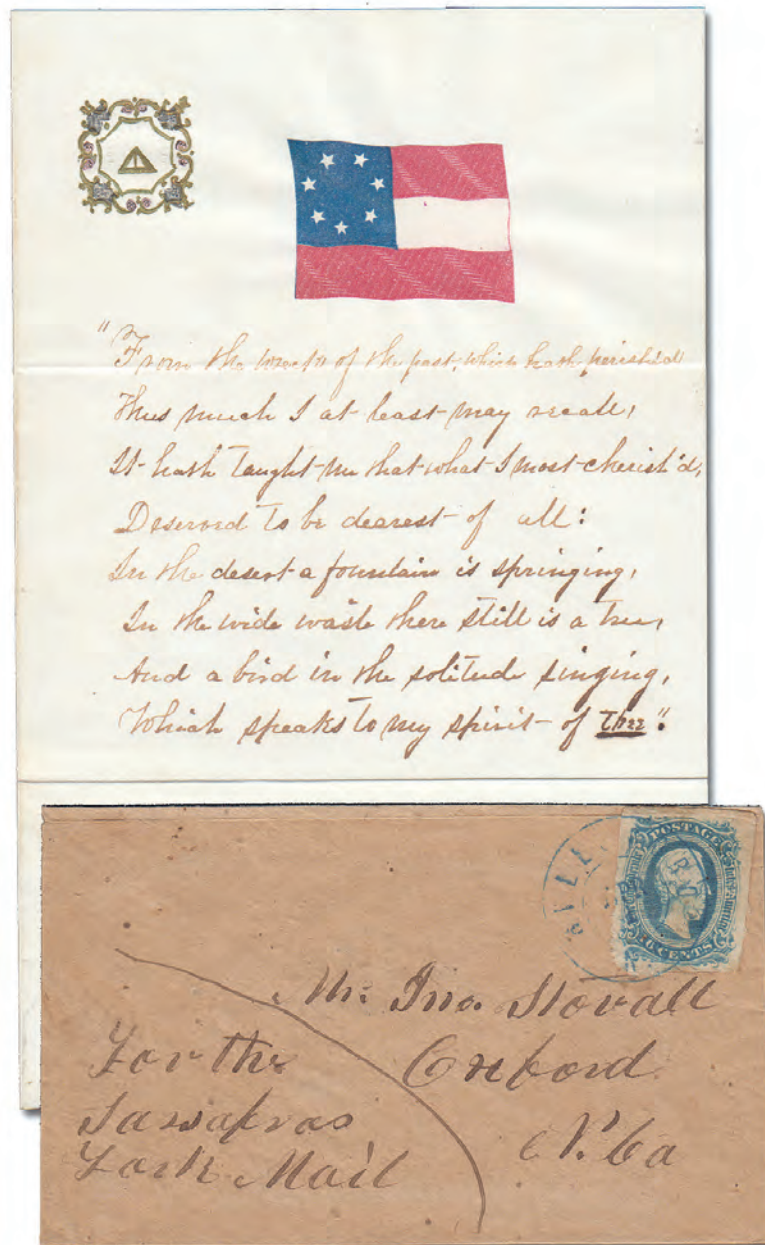 "From the wreck of the past, which hath perish'd
Thus much I at least may recall,
It hath taught me that what I most cherish'd,
Deserved to be dearest of all:
In the desert a fountain is springing,
In the wide waste there still is a tree,
And a bird in the solitude singing,
Which speaks to my spirit of thee."
POSTAGE
Confederate States of America
CENTS
HILL
Mr. Jno. Stovall
Oxford
N. Ca
For the
Sassafras
Fork Mail